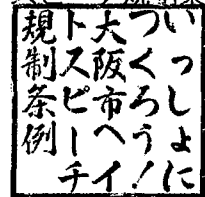 いっしょに
つくろう!
大阪市ヘイ
トスピーチ
規制条例